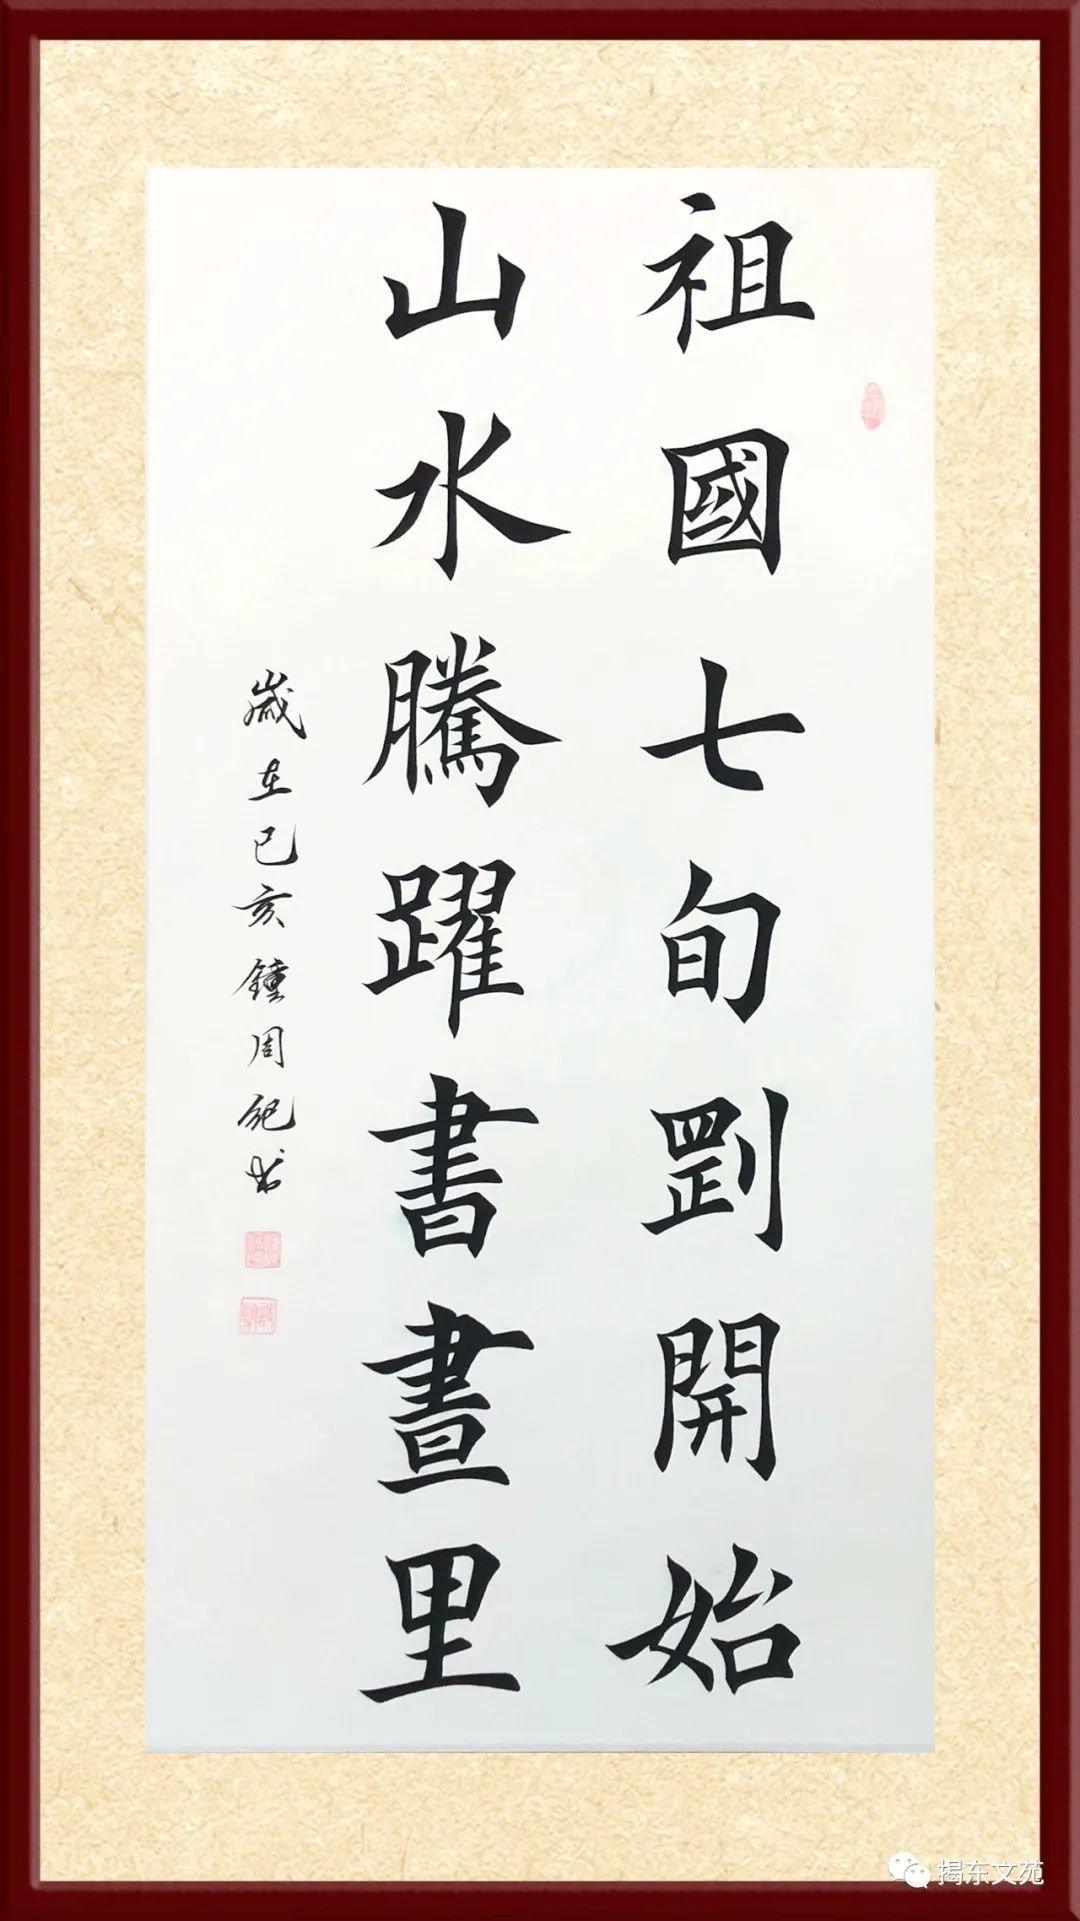 祖國七旬㓻開始
山水騰躍書畫里
歲在己亥鍾周紀书
揭东文苑